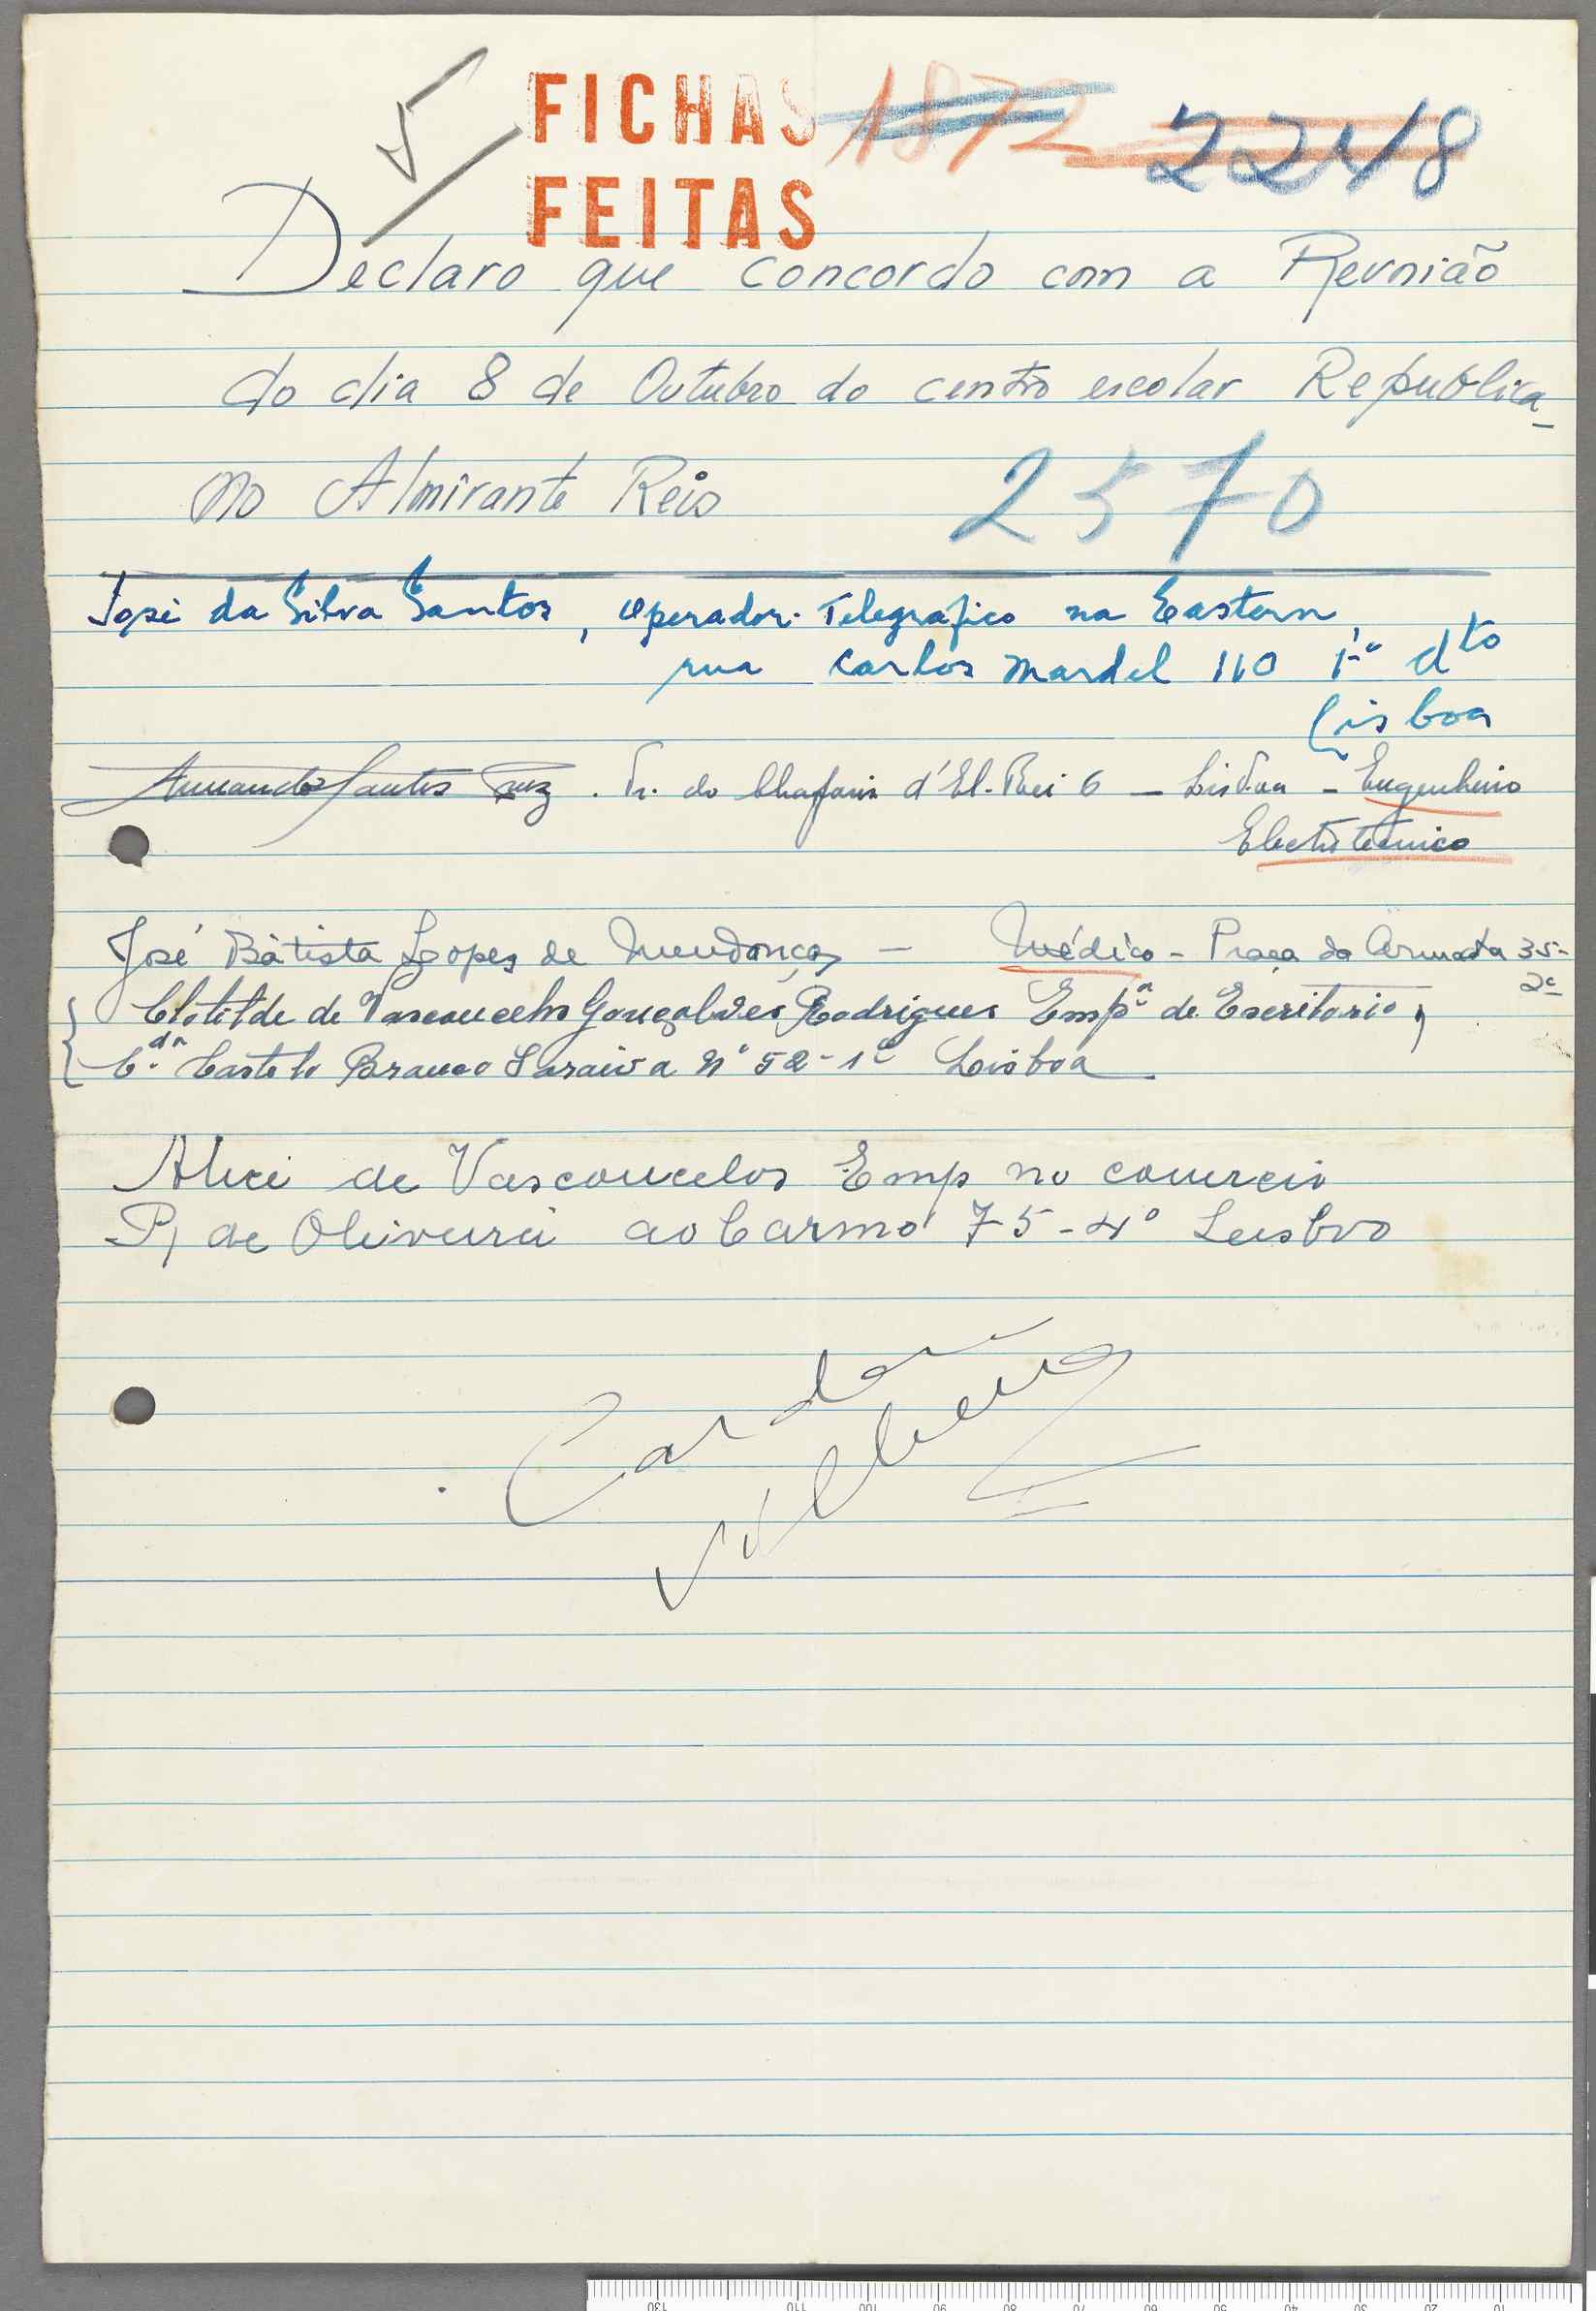 5
FICHAS 1872 2248
FEITAS
Declaro que concordo com a Reunião
do dia 8 de Outubro do centro escolar Republica-
no Almirante Reis
2570
José da Silva Santos, operador. Telegrafico na Eastern,
rua Carlos Mardel 110 1º dto
Lisboa
Armando Santos . Tr. do Chafariz d'El-Rei 6 — Lisboa - Engenheiro
Electrotécnico
José Batista Lopes de Mendonça — Médico - Praça da Armada 35-
2º
Clotilde de Vasconcelos Gonçalves Rodrigues Empª de Escritorio,
Cda. Castelo Branco Saraiva nº 52-1º Lisboa
Alice de Vasconcelos Emp no comercio
de Oliveira ao Carmo 75-4º Lisboa